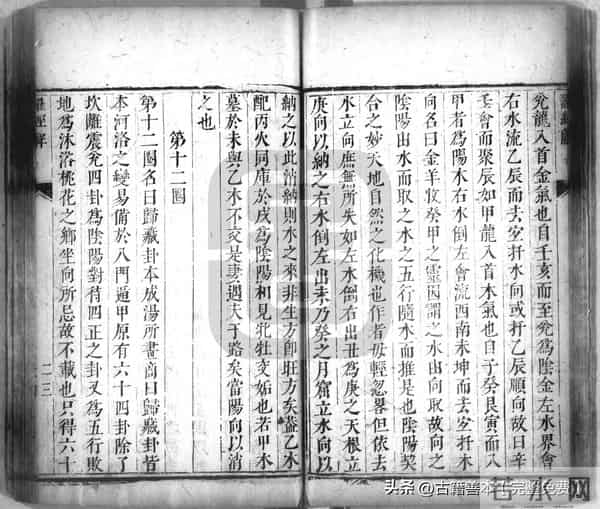 兌龍入首金氣也自壬亥而至兌為陰金左水界會
右水流乙辰而去宜扦水向或扦乙辰順向故曰辛
壬會而聚辰如甲龍入首木氣也自子癸艮寅而入
甲者為陽木右水倒左會流西南未坤而去宜扦木
向名曰金羊收癸甲之靈因謂之水出向取故向之
陰陽出水而取之水之五行隨水而推是也陰陽契
合之妙天地自然之化機也作者毋輕忽畧但依去
水立向庶無所失如左水倒右出丑為庚之天根立
庚向以納之右水倒左出未乃癸之月窟立水向以
納之以此消納則水之來非生方卽旺方矣蓋乙木
配丙火同庫於戌為陰陽相見牝牡交姤也若甲木
墓於未與乙木不交是妻遇夫于路矣當陽向以消
之也
第十二圖
第十二圖名曰歸藏卦本成湯所畫商曰歸藏卦皆
本河洛之變易備於八門遁甲原有六十四卦除了
坎離震兌四卦為陰陽對待四正之卦又為五行敗
地為沐浴桃花之鄉坐向所忌故不載也只得六十
二三
头条 @古籍善本